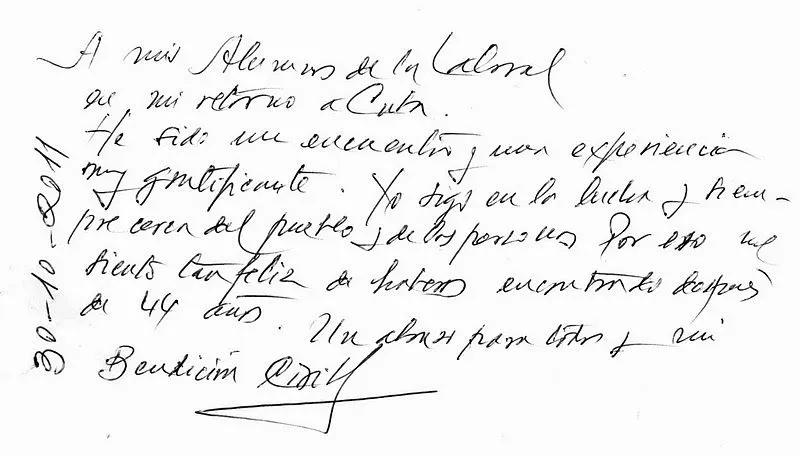 A mis Alumnos de la Laboral
en mi retorno a Cuba.
Ha sido un encuentro y una experiencia
muy gratificante. Yo sigo en la lucha y siem-
pre cerca del pueblo y de las personas Por eso me
siento tan feliz de haberos encontrado después
de 44 años. Un abrazo para todos y mi
Bendición
30-10-2011